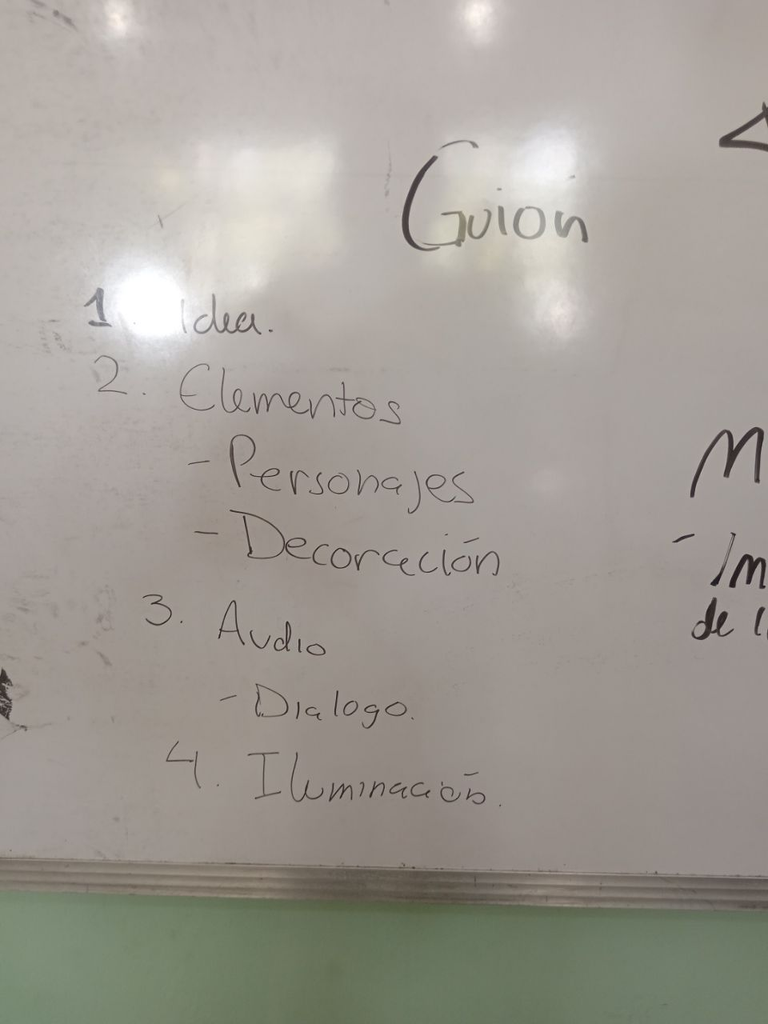 Guión
1. Idea.
2. Elementos
- Personajes
- Decoración
3. Audio
- Dialogo.
4. Iluminación.
M
- Im
de l